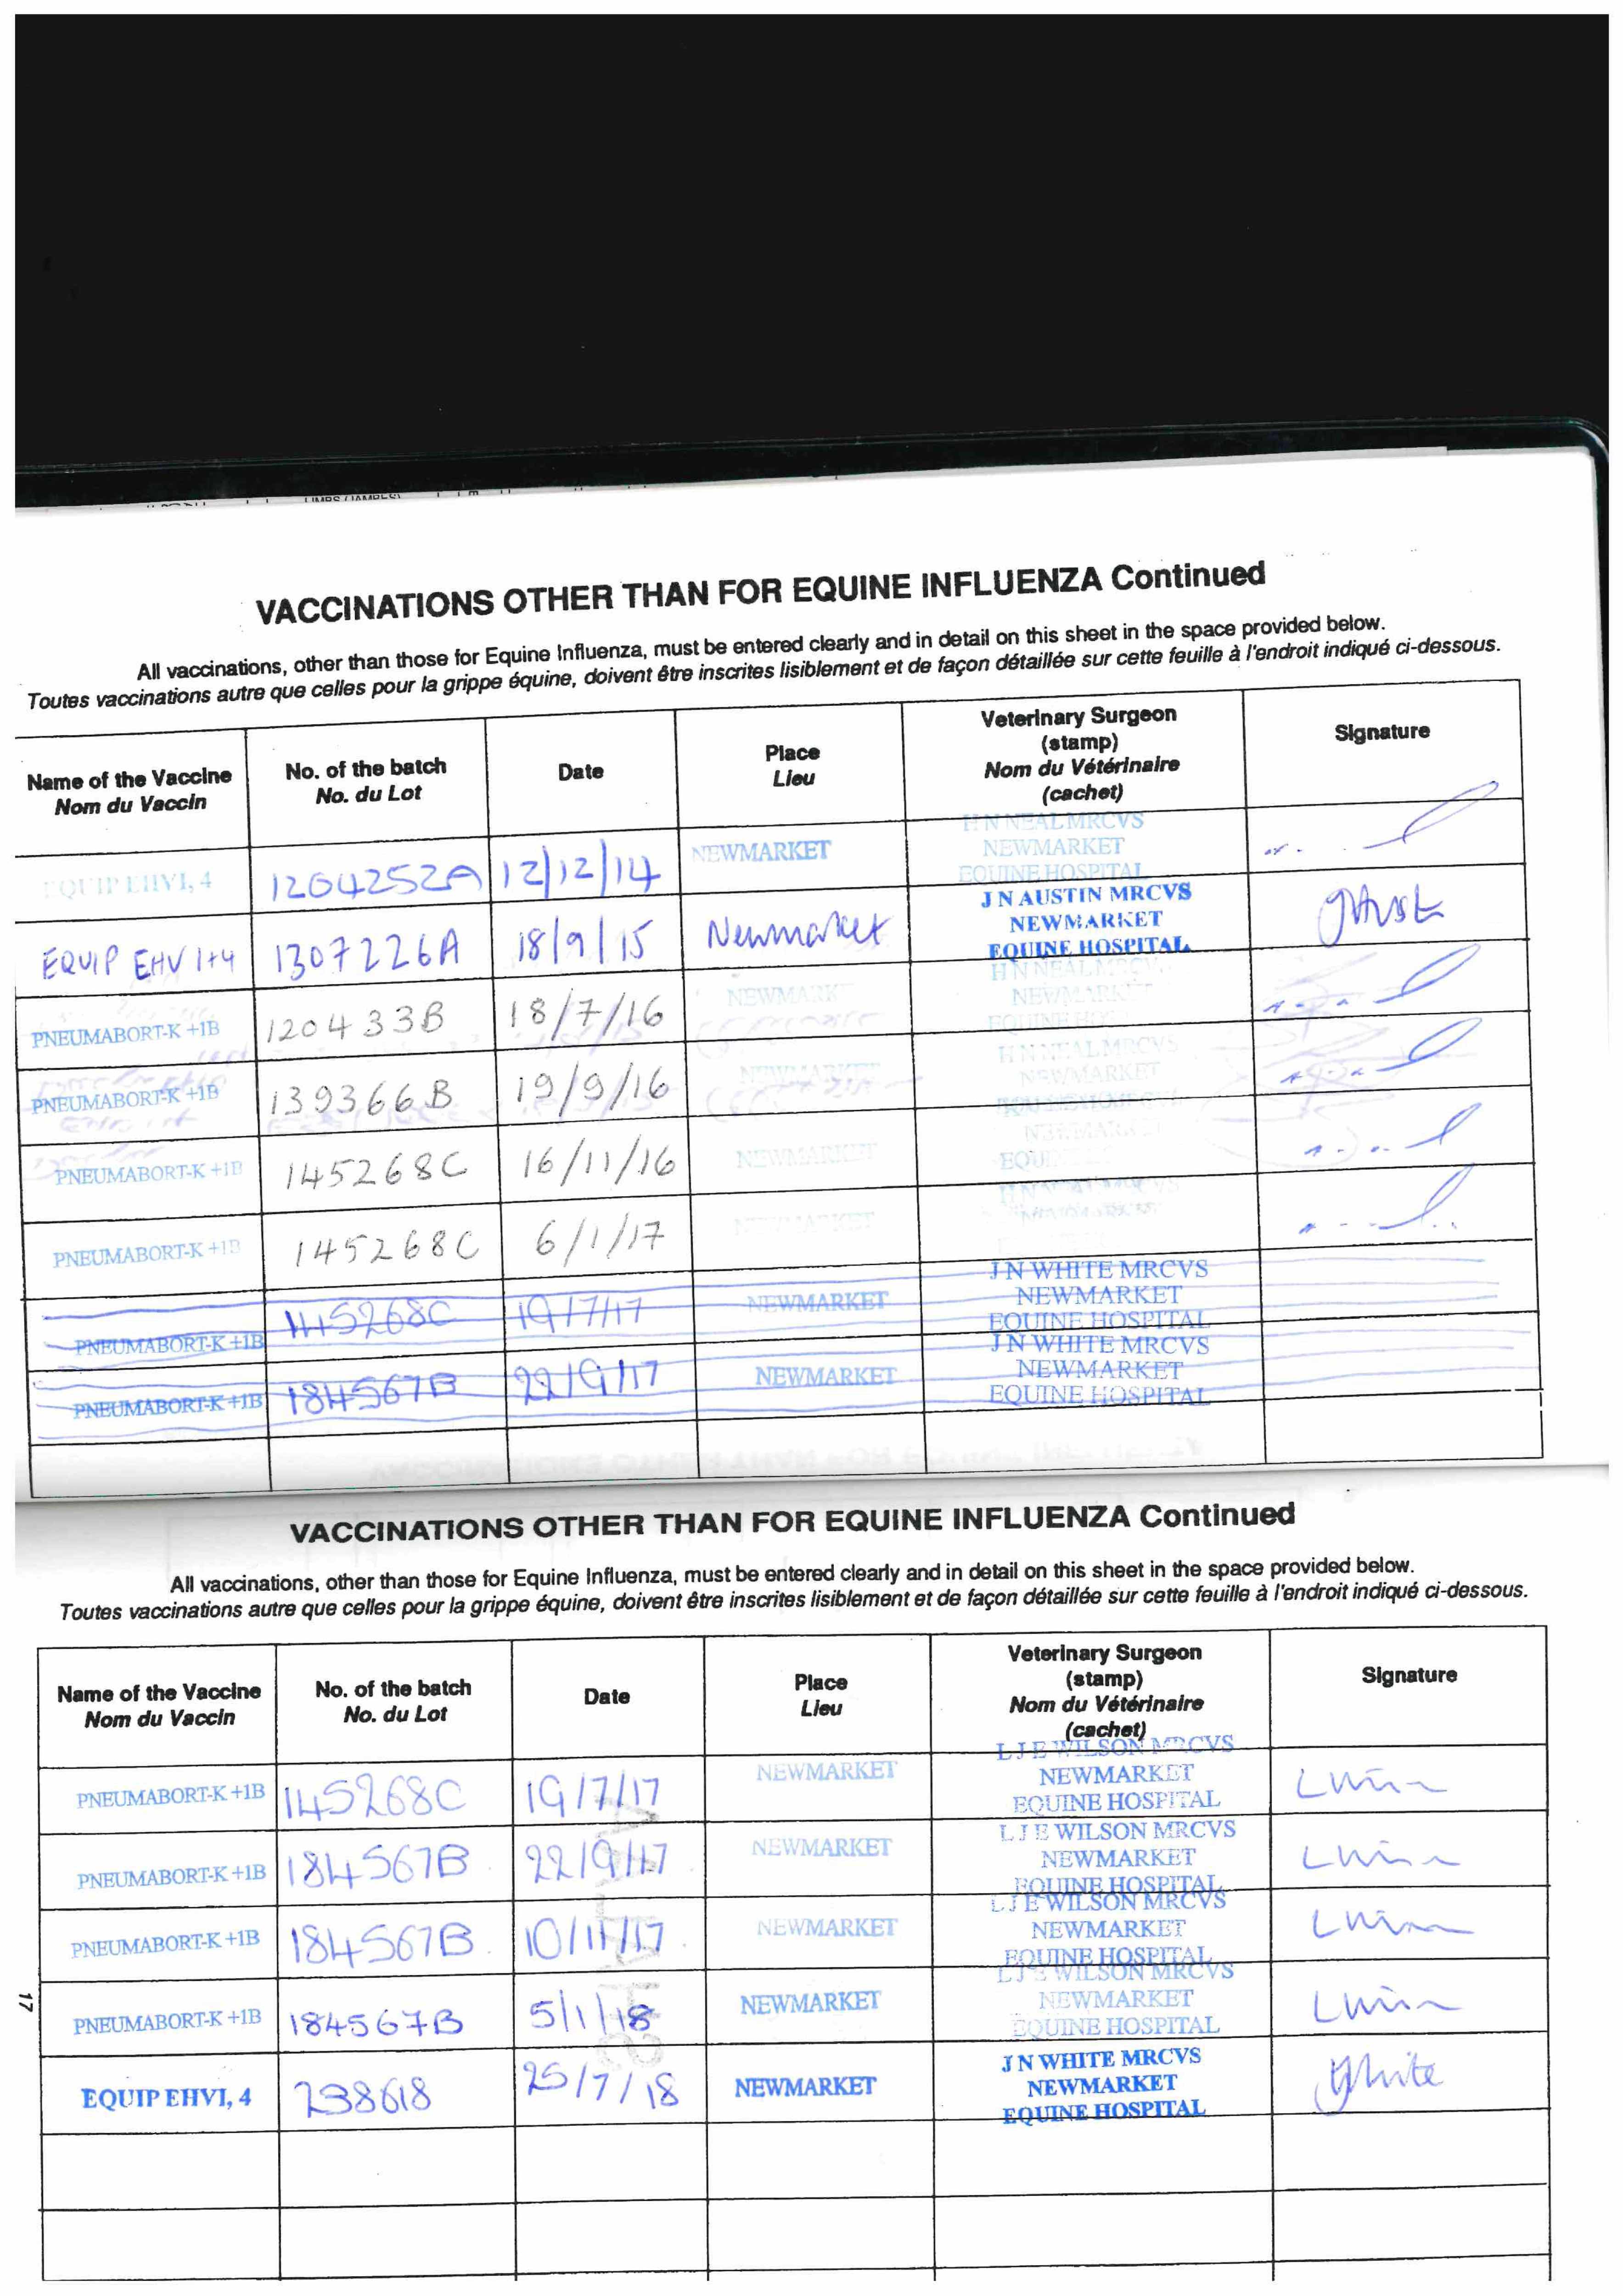 VACCINATIONS OTHER THAN FOR EQUINE INFLUENZA Continued
All vaccinations, other than those for Equine Influenza, must be entered clearly and in detail on this sheet in the space provided below.
Toutes vaccinations autre que celles pour la grippe équine, doivent être inscrites lisiblement et de façon détaillée sur cette feuille à l'endroit indiqué ci-dessous.
Name of the Vaccine
Nom du Vaccin
No. of the batch
No. du Lot
Date
Place
Lieu
Veterinary Surgeon
(stamp)
Nom du Vétérinaire
(cachet)
Signature
EQUIP EHV1, 4 1204252A 12/12/14 NEWMARKET
H N NEAL MRCVS
NEWMARKET
EQUINE HOSPITAL
EQUIP EHV 1+4 1307226A 18/9/15 Newmarket
J N AUSTIN MRCVS
NEWMARKET
EQUINE HOSPITAL
PNEUMABORT-K +1B 120433B 18/7/16 NEWMARKET
H N NEAL MRCVS
NEWMARKET
EQUINE
PNEUMABORT-K +1B 139366B 19/9/16 NEWMARKET
H N NEAL MRCVS
NEWMARKET
PNEUMABORT-K +1B 145268C 16/11/16 NEWMARKET
NEWMARKET
PNEUMABORT-K +1B 145268C 6/1/17 NEWMARKET
PNEUMABORT-K +1B 145268C 19/7/17 NEWMARKET
J N WHITE MRCVS
NEWMARKET
EQUINE HOSPITAL
PNEUMABORT-K +1B 184567B 22/9/17 NEWMARKET
J N WHITE MRCVS
NEWMARKET
EQUINE HOSPITAL
VACCINATIONS OTHER THAN FOR EQUINE INFLUENZA Continued
All vaccinations, other than those for Equine Influenza, must be entered clearly and in detail on this sheet in the space provided below.
Toutes vaccinations autre que celles pour la grippe équine, doivent être inscrites lisiblement et de façon détaillée sur cette feuille à l'endroit indiqué ci-dessous.
Name of the Vaccine
Nom du Vaccin
No. of the batch
No. du Lot
Date
Place
Lieu
Veterinary Surgeon
(stamp)
Nom du Vétérinaire
(cachet)
Signature
PNEUMABORT-K +1B 145268C 19/7/17 NEWMARKET
L J E WILSON MRCVS
NEWMARKET
EQUINE HOSPITAL
PNEUMABORT-K +1B 184567B 22/9/17 NEWMARKET
L J E WILSON MRCVS
NEWMARKET
EQUINE HOSPITAL
PNEUMABORT-K +1B 184567B 10/11/17 NEWMARKET
L J E WILSON MRCVS
NEWMARKET
EQUINE HOSPITAL
PNEUMABORT-K +1B 184567B 5/1/18 NEWMARKET
L J E WILSON MRCVS
NEWMARKET
EQUINE HOSPITAL
EQUIP EHV1, 4 238618 25/7/18 NEWMARKET
J N WHITE MRCVS
NEWMARKET
EQUINE HOSPITAL
JWhite
17